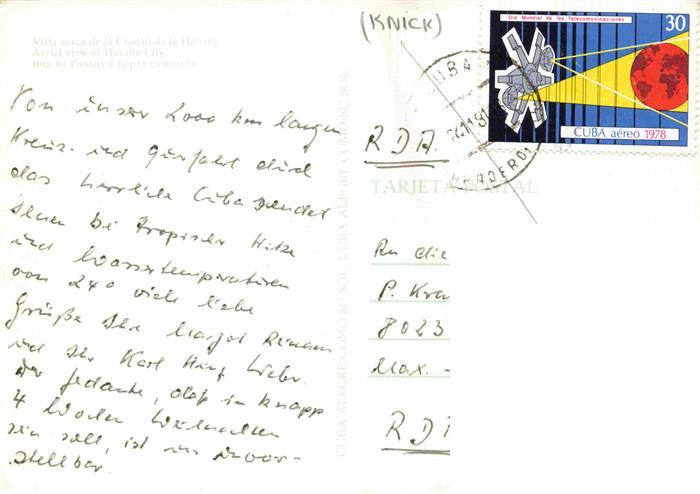 Vista aerea de la Ciudad de la Habana
Aerial view of Havana City
Вид на Гавану с борта самолета
Von unser 2000 km langen
Kreuz- und Querfahrt durch
das herrliche Cuba sendet
Ihnen bei tropischer Hitze
und Wassertemperaturen
von 24° viele liebe
Grüße Ihre Margot
und Ihr Karl Heinz
Der Gedanke, daß in knapp
4 Wochen Weihnachten
sein soll, ist unvor-
stellbar.
CUBA ALEGRE COMO SU SOL. CUBA ALEGRE COMO SU SOL
(KNICK)
Dia Mundial de las Telecomunicaciones
30
CUBA aéreo 1978
CUBA
VARADERO
RDA.
TARJETA POSTAL
An die
P. Kra
8023
Max. -
RD